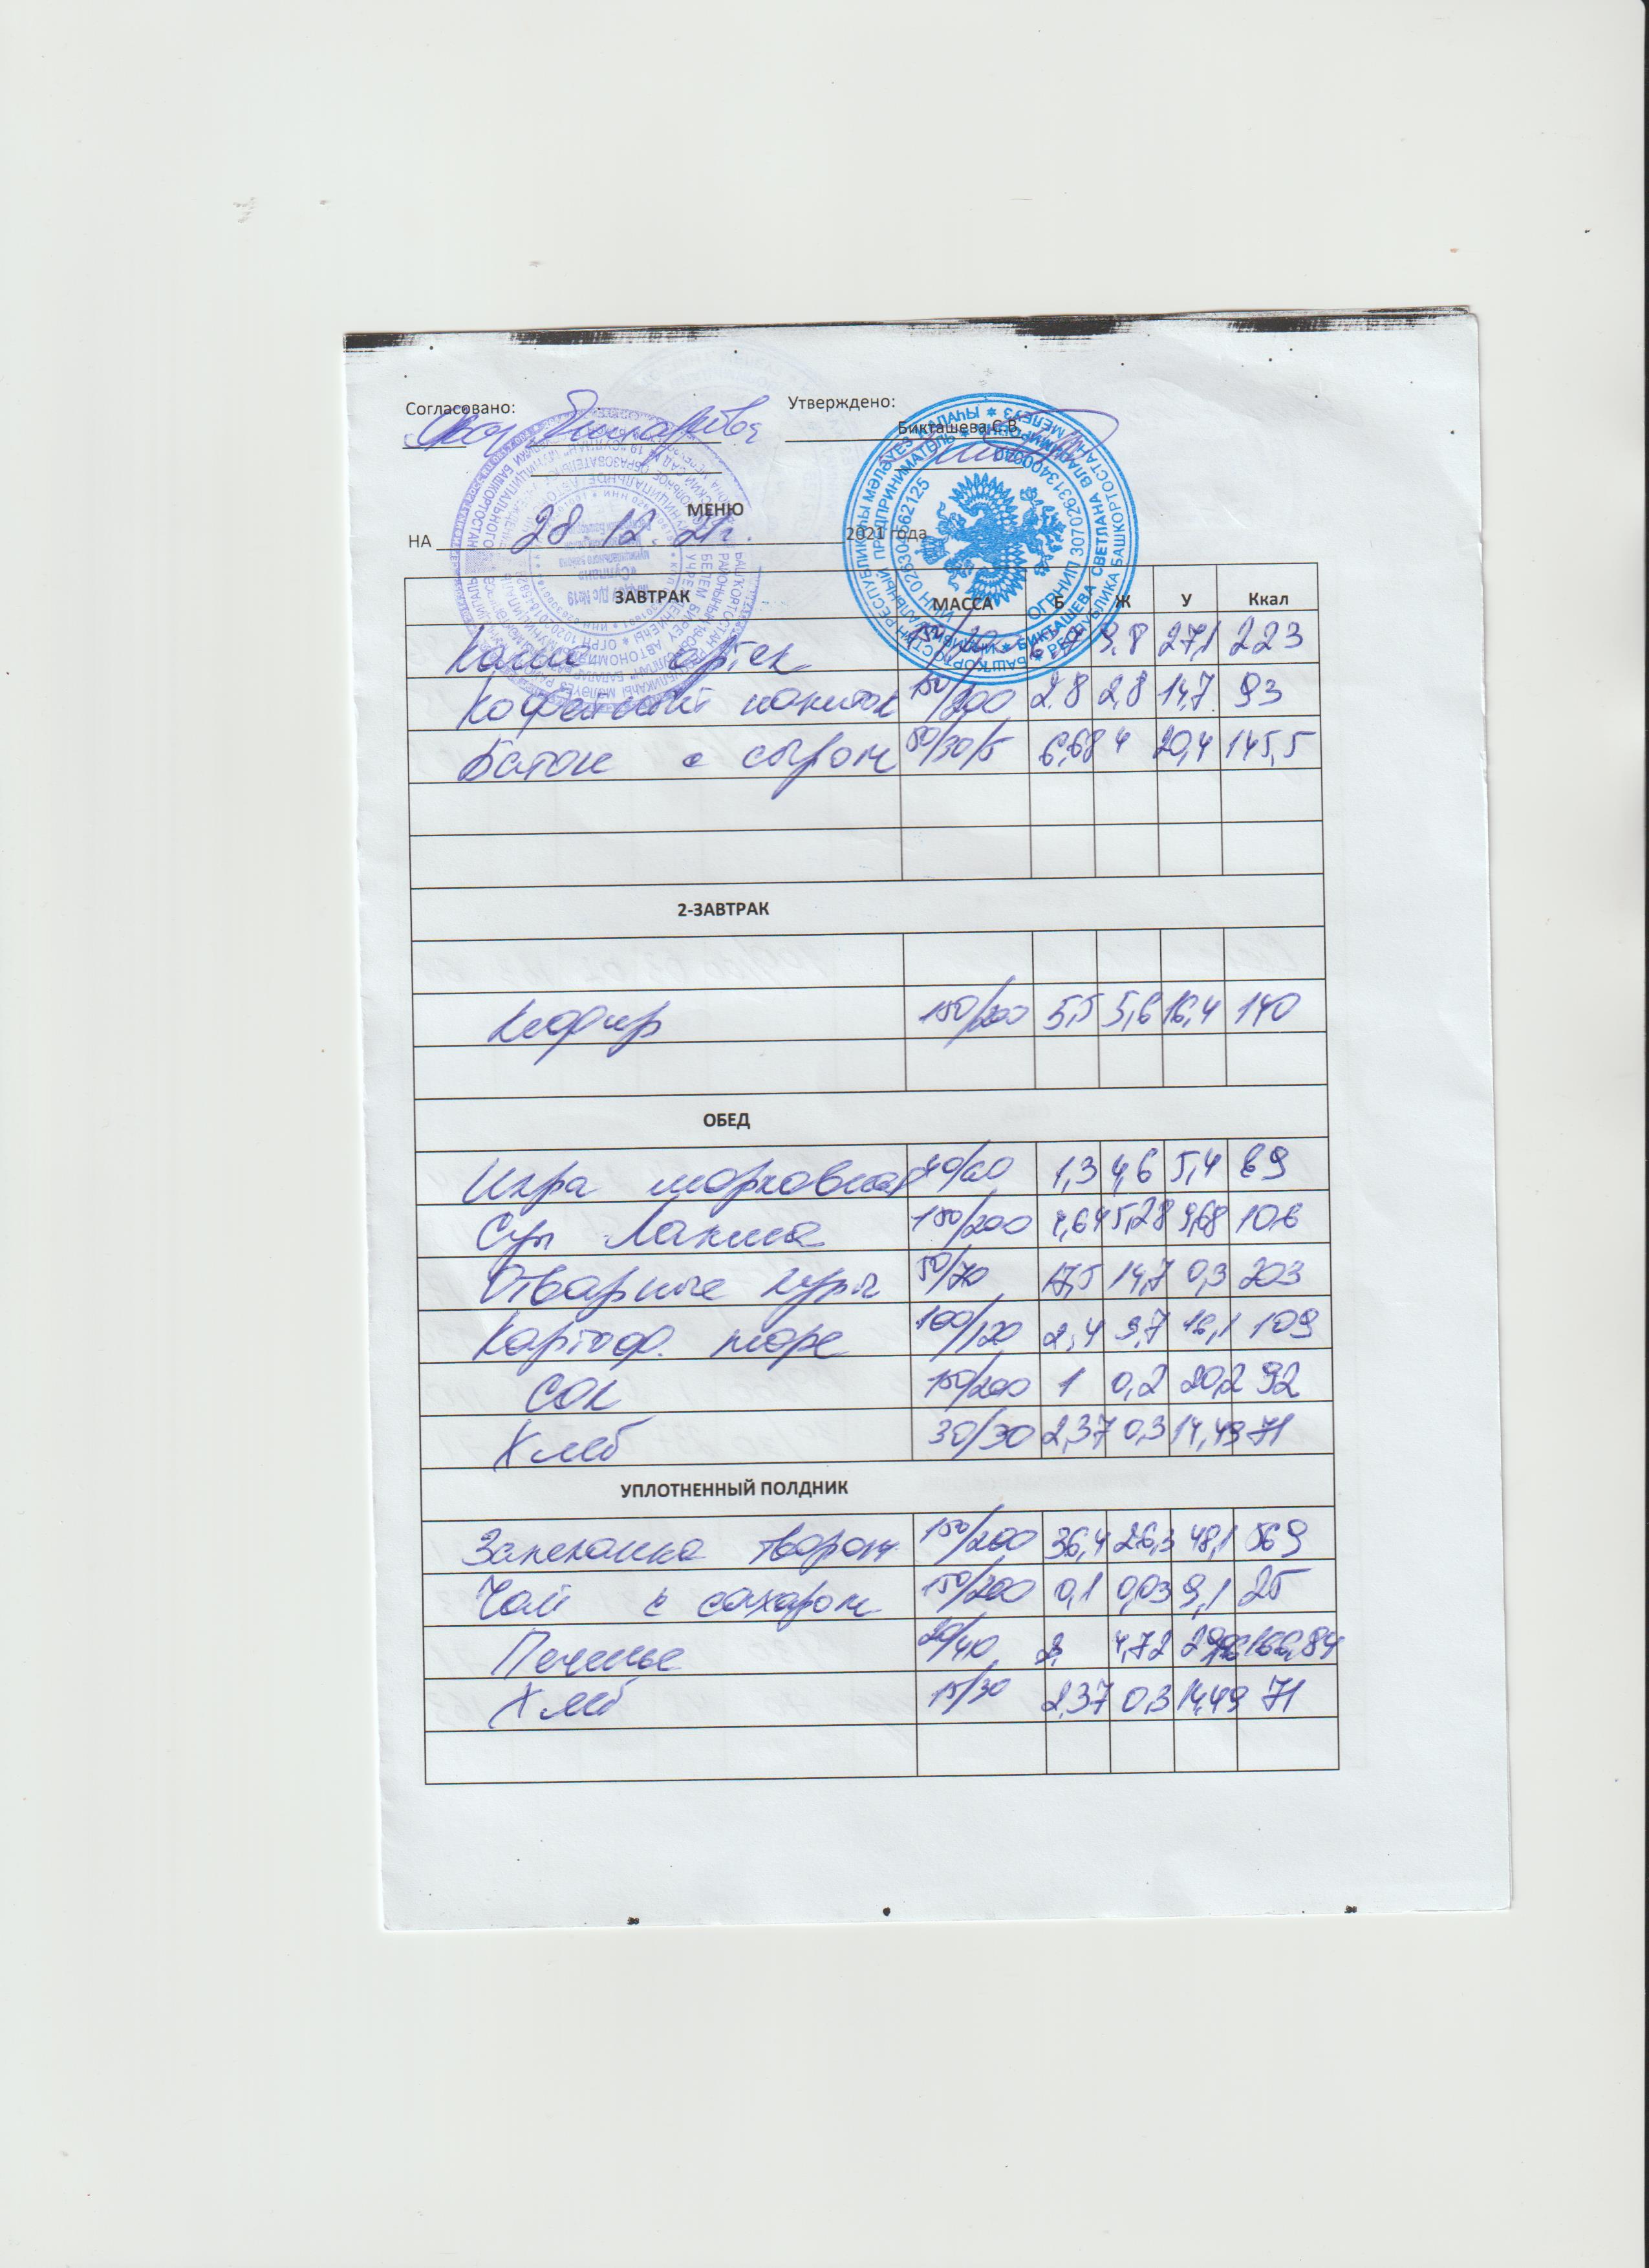 Согласовано:
Утверждено:
Бикташева С.В.
МЕНЮ
НА 28.12.21г. 2021 года
ЗАВТРАК МАССА Б Ж У Ккал
Каша 9,8 27,1 223
Кофейный напиток 150/200 2,8 2,8 14,7 93
Батон с сыром 50/30/5 6,68 4 20,4 145,5
2-ЗАВТРАК
Кефир 150/200 5,5 5,6 16,4 140
ОБЕД
Икра морковная 40/60 1,3 4,6 5,4 69
Суп Лапша 150/200 4,64 5,28 9,68 106
Отварные куры 50/70 17,5 14,7 0,3 203
Картоф. пюре 100/120 2,4 9,7 16,1 109
Сок 150/200 1 0,2 20,2 92
Хлеб 30/30 2,37 0,3 14,49 71
УПЛОТНЕННЫЙ ПОЛДНИК
Запеканка творож. 150/200 36,4 26,3 48,1 569
Чай с сахаром 150/200 0,1 0,03 9,1 25
Печенье 20/40 4,72 166,84
Хлеб 15/30 2,37 0,3 14,49 71